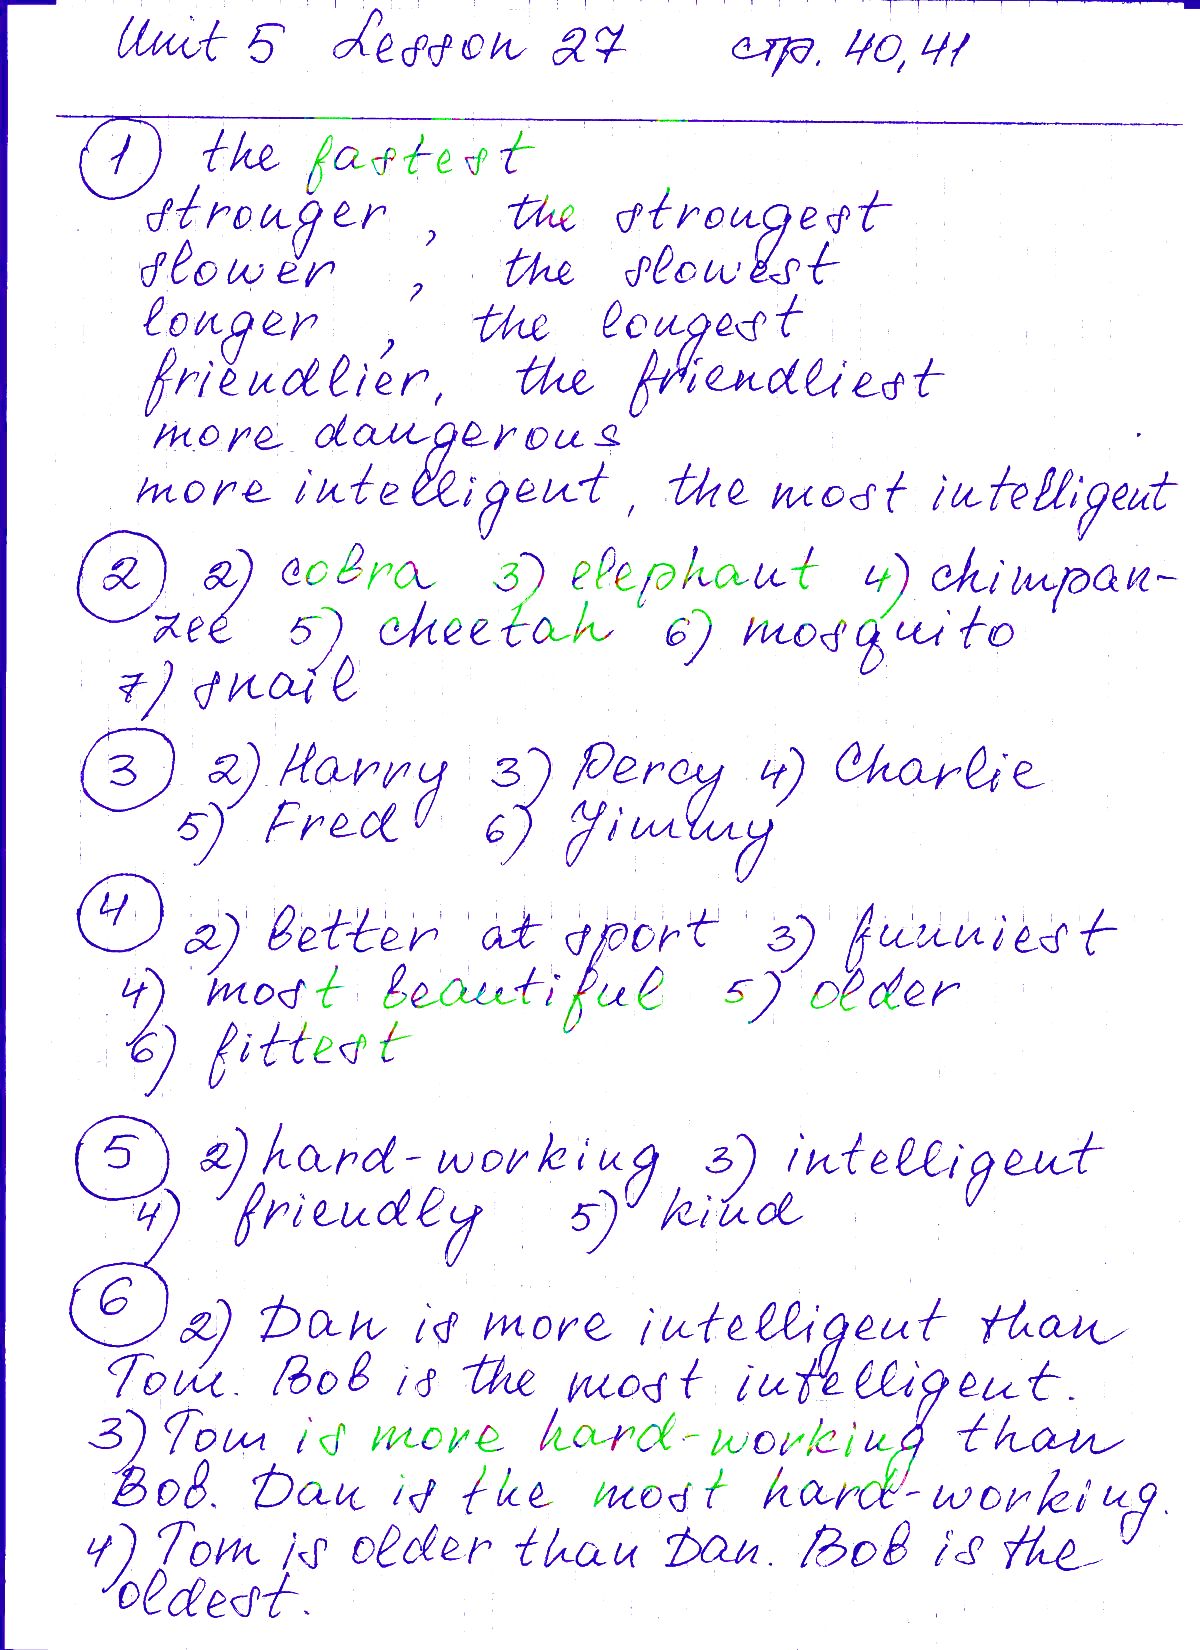 Unit 5 Lesson 27 стр. 40, 41
1 the fastest
stronger, the strongest
slower, the slowest
longer, the longest
friendlier, the friendliest
more dangerous
more intelligent, the most intelligent
2 2) cobra 3) elephant 4) chimpan-
zee 5) cheetah 6) mosquito
7) snail
3 2) Harry 3) Percy 4) Charlie
5) Fred 6) Jimmy
4 2) better at sport 3) funniest
4) most beautiful 5) older
6) fittest
5 2) hard-working 3) intelligent
4) friendly 5) kind
6 2) Dan is more intelligent than
Tom. Bob is the most intelligent.
3) Tom is more hard-working than
Bob. Dan is the most hard-working.
4) Tom is older than Dan. Bob is the
oldest.